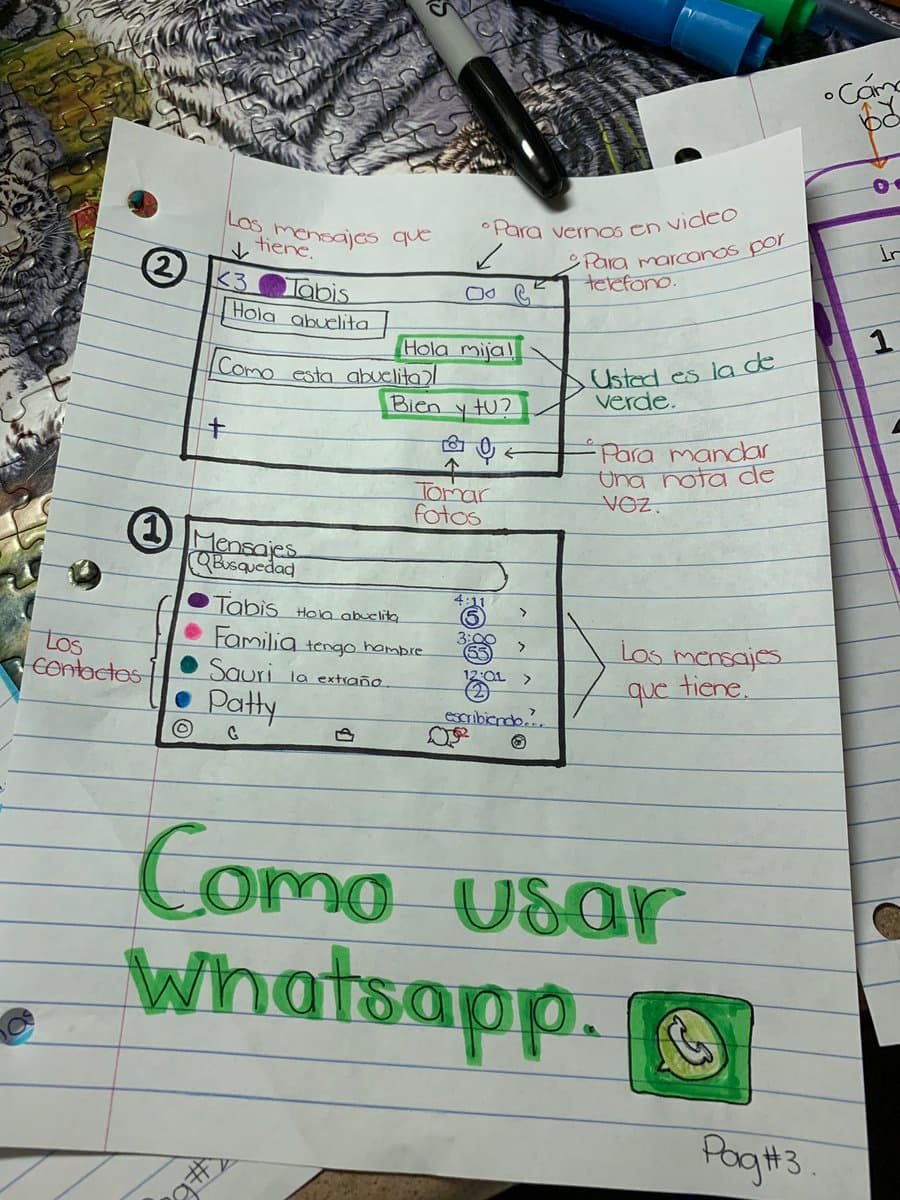 Los mensajes que
tiene.
°Para vernos en video
°Para marcanos por
telefono.
2
<3 Tabis
Hola abuelita
Hola mija!
Como esta abuelita?
Bien y tu?
Usted es la de
verde.
+
°Para mandar
una nota de
voz.
Tomar
fotos
1
Mensajes
Busquedad
Tabis Hola abuelita 4:11
5 >
Familia tengo hambre 3:00
55 >
Sauri la extraño. 12:01
2 >
Patty escribiendo... >
Los
contactos
Los mensajes
que tiene.
Como usar
Whatsapp.
Pag#3.
°Cám
y
1